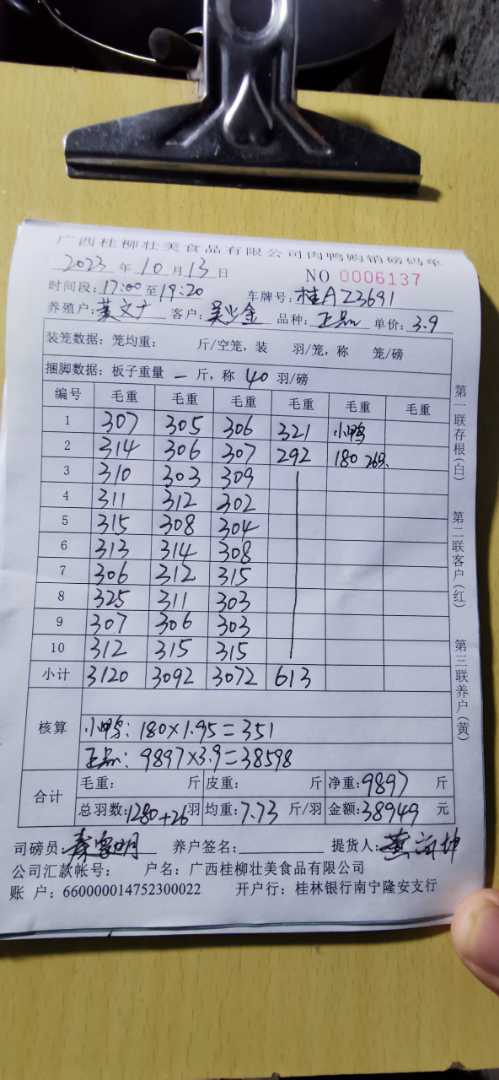 广西桂柳壮美食品有限公司肉鸭购销磅码单
2023 年 10 月 13 日 NO 0006137
时间段: 17:00 至 19:20 车牌号: 桂AZ3691
养殖户: 客户: 品种: 正品 单价: 3.9
装笼数据: 笼均重: 斤/空笼, 装 羽/笼, 称 笼/磅
捆脚数据: 板子重量 一 斤, 称 40 羽/磅
编号 毛重 毛重 毛重 毛重 毛重 毛重
1 307 305 306 321 小鸭
2 314 306 307 292 180 26只
3 310 303 309
4 311 312 302
5 315 308 304
6 313 314 308
7 306 312 315
8 325 311 303
9 307 306 303
10 312 315 315
小计 3120 3092 3072 613
核算
小鸭: 180×1.95=351
正品: 9897×3.9=38598
合计 毛重: 斤 皮重: 斤 净重: 9897 斤
总羽数: 1280+26 羽 均重: 7.73 斤/羽 金额: 38949 元
司磅员: 养户签名: 提货人:
公司汇款帐号: 户名: 广西桂柳壮美食品有限公司
账 户: 660000014752300022 开户行: 桂林银行南宁隆安支行
第一联存根(白)
第二联客户(红)
第三联养户(黄)